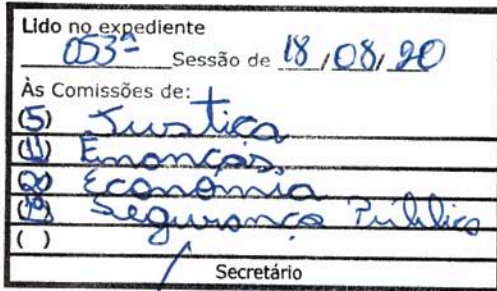 Lido no expediente
053ª Sessão de 18/08/20
Às Comissões de:
(5) Justiça
(11) Finanças,
(20) Economia
(19) Segurança Pública
( )
Secretário